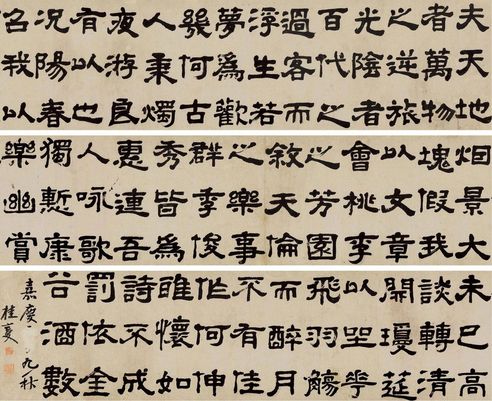 夫天地
者萬物
之逆旅
光陰者
百代之
過客而
浮生若
夢爲歡
幾何古
人秉燭
夜游良
有以也
況陽春
召我以
烟景大
塊假我
以文章
會桃李
之芳園
敘天倫
之樂事
群季俊
秀皆爲
惠連吾
人詠歌
獨慙康
樂幽賞
未已高
談轉清
開瓊筵
以坐華
飛羽觴
而醉月
不有佳
作何伸
雅懷如
詩不成
罰依金
谷酒數
嘉慶九秋
桂馥